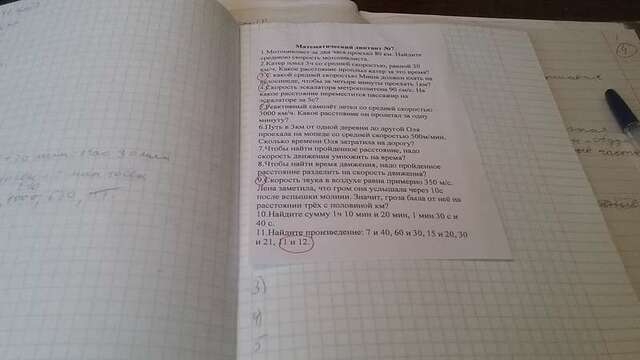 Математический диктант №7
1.Мотоциклист за два часа проехал 80 км. Найдите
среднюю скорость мотоциклиста.
2.Катер плыл 3ч со средней скоростью, равной 20
км/ч. Какое расстояние проплыл катер за это время?
3.С какой средней скоростью Миша должен ехать на
велосипеде, чтобы за четыре минуты проехать 1км?
4.Скорость эскалатора метрополитена 90 см/с. На
какое расстояние переместится пассажир на
эскалаторе за 5с?
5.Реактивный самолёт летел со средней скоростью
3000 км/ч. Какое расстояние он пролетал за одну
минуту?
6.Путь в 3км от одной деревни до другой Оля
проехала на мопеде со средней скоростью 500м/мин.
Сколько времени Оля затратила на дорогу?
7.Чтобы найти пройденное расстояние, надо
скорость движения умножить на время?
8.Чтобы найти время движения, надо пройденное
расстояние разделить на скорость движения?
9.Скорость звука в воздухе равна примерно 350 м/с.
Лена заметила, что гром она услышала через 10с
после вспышки молнии. Значит, гроза была от неё на
расстоянии трёх с половиной км?
10.Найдите сумму 1ч 10 мин и 20 мин, 1 мин 30 с и
40 с.
11.Найдите произведение: 7 и 40, 60 и 30, 15 и 20, 30
и 21, 11 и 12.
3)
4
5